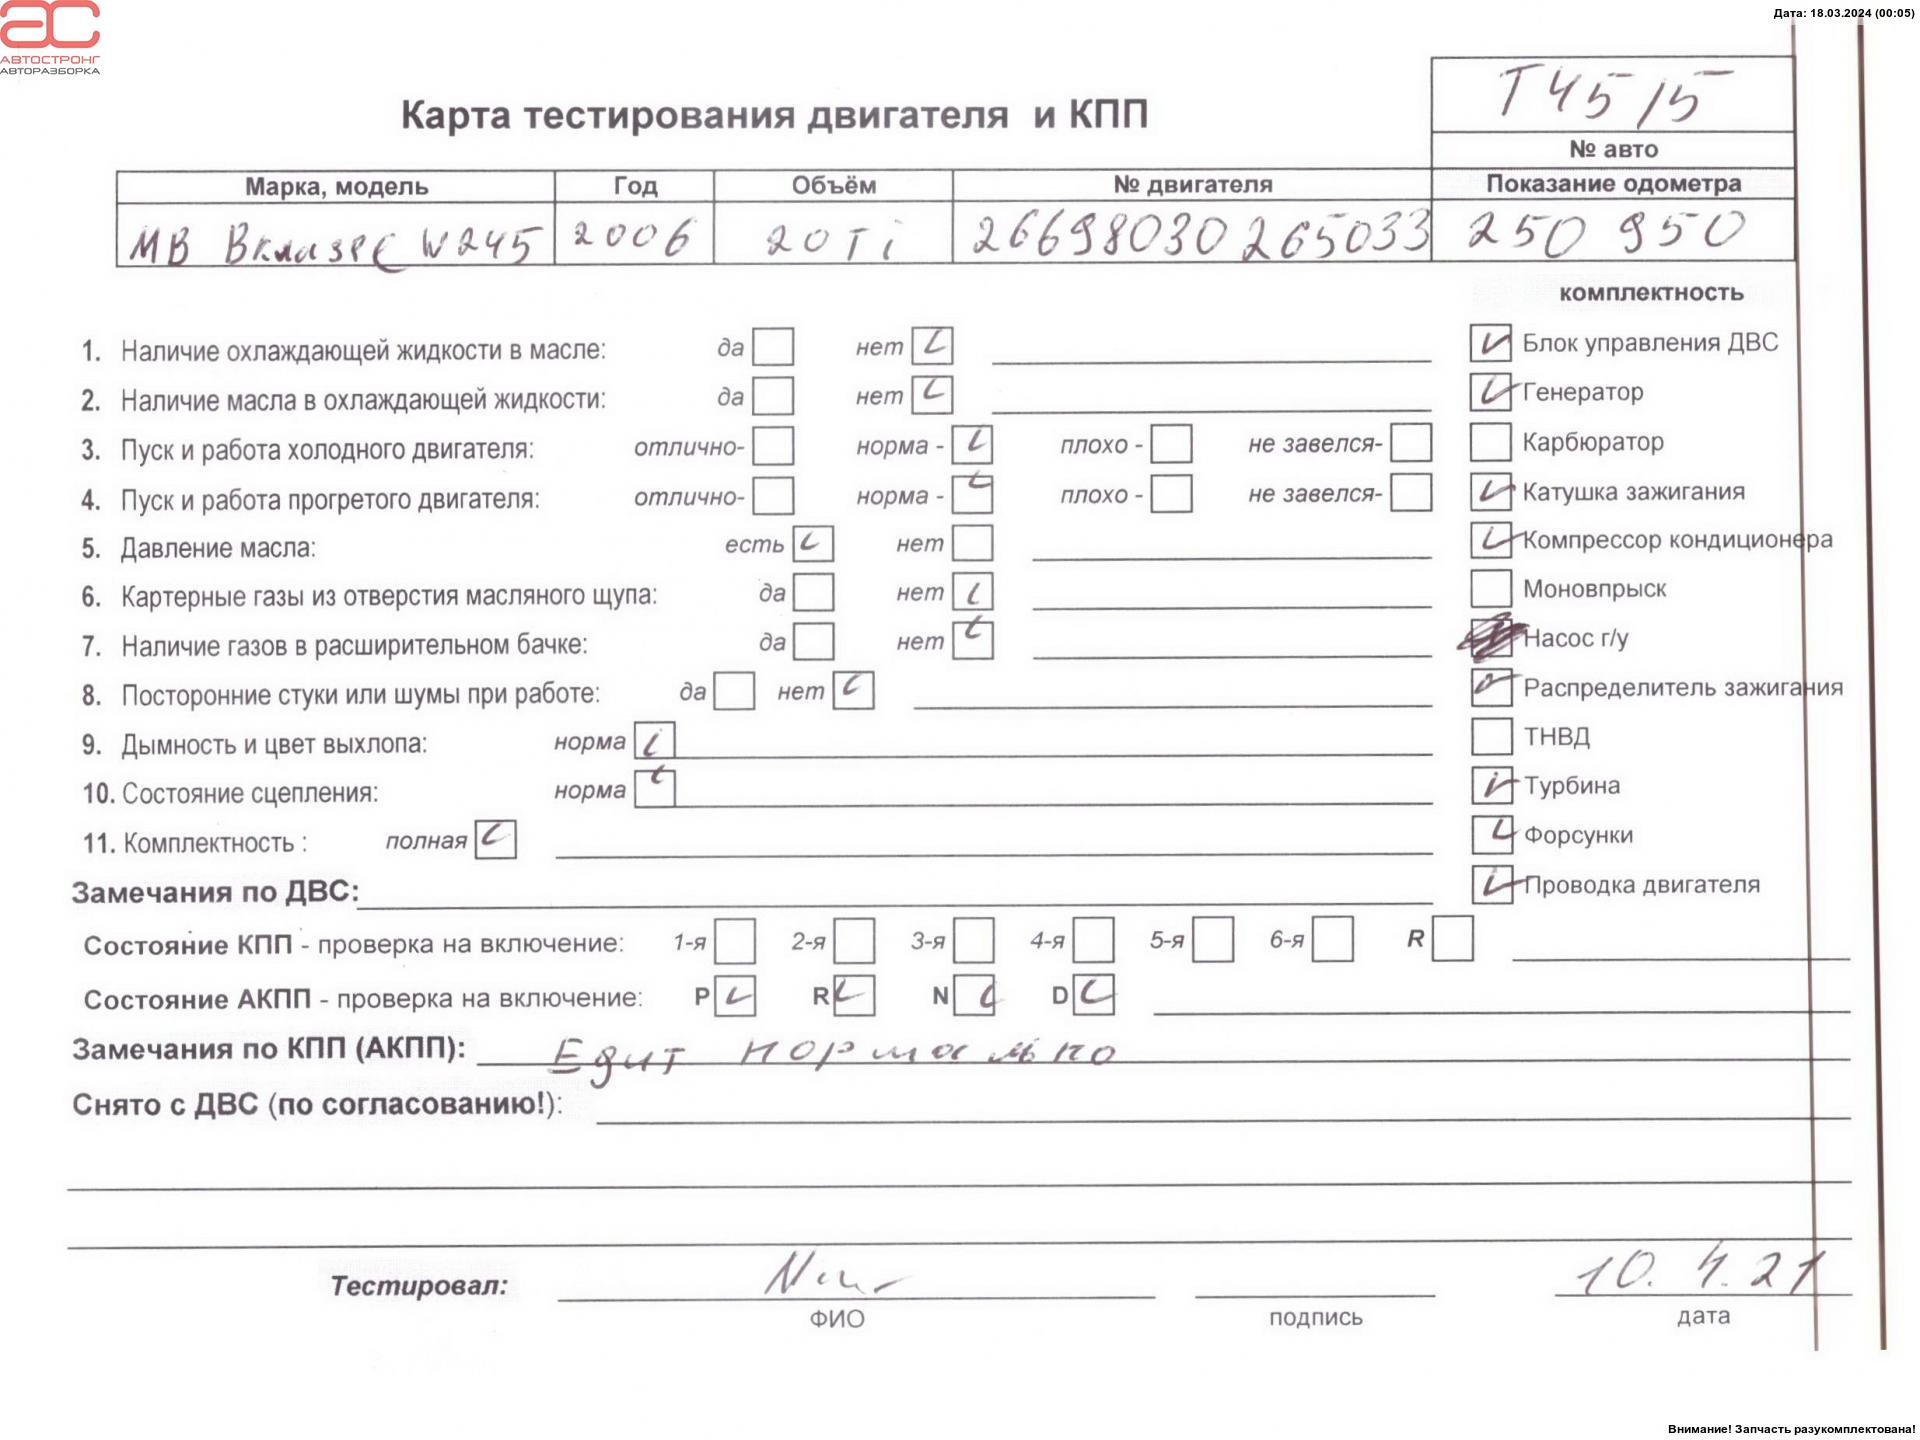 Дата: 18.03.2024 (00:05)
АВТОСТРОНГ
АВТОРАЗБОРКА
Т4515
Карта тестирования двигателя и КПП
№ авто
Марка, модель Год Объём № двигателя Показание одометра
МВ Вклassе W245 2006 20 Ti 26698030265033 250 950
комплектность
1. Наличие охлаждающей жидкости в масле: да нет
Блок управления ДВС
2. Наличие масла в охлаждающей жидкости: да нет
Генератор
3. Пуск и работа холодного двигателя: отлично- норма - плохо - не завелся-
Карбюратор
4. Пуск и работа прогретого двигателя: отлично- норма - плохо - не завелся-
Катушка зажигания
5. Давление масла: есть нет
Компрессор кондиционера
6. Картерные газы из отверстия масляного щупа: да нет
Моновпрыск
7. Наличие газов в расширительном бачке: да нет
Насос г/у
8. Посторонние стуки или шумы при работе: да нет
Распределитель зажигания
9. Дымность и цвет выхлопа: норма
ТНВД
10. Состояние сцепления: норма
Турбина
11. Комплектность : полная
Форсунки
Замечания по ДВС:
Проводка двигателя
Состояние КПП - проверка на включение: 1-я 2-я 3-я 4-я 5-я 6-я R
Состояние АКПП - проверка на включение: P R N D
Замечания по КПП (АКПП): Едит нормально
Снято с ДВС (по согласованию!):
Тестировал: 10.4.21
ФИО подпись дата
Внимание! Запчасть разукомплектована!